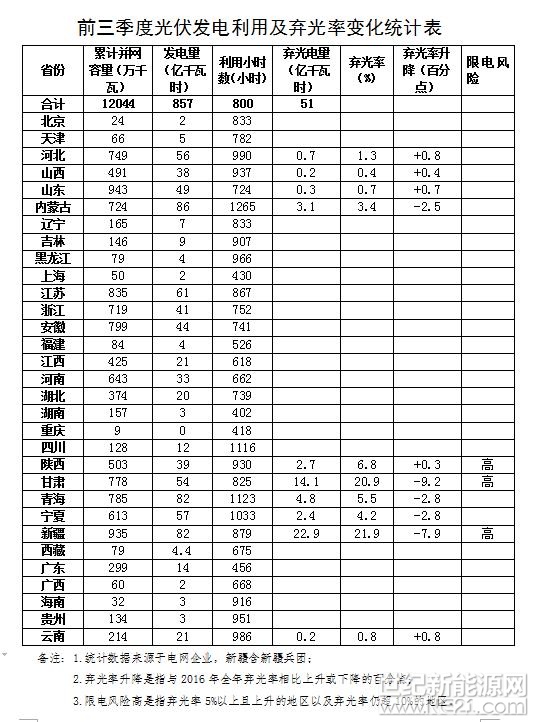 前三季度光伏发电利用及弃光率变化统计表
省份 累计并网容量（万千瓦） 发电量（亿千瓦时） 利用小时数（小时） 弃光电量（亿千瓦时） 弃光率（%） 弃光率升降（百分点） 限电风险
合计 12044 857 800 51
北京 24 2 833
天津 66 5 782
河北 749 56 990 0.7 1.3 +0.8
山西 491 38 937 0.2 0.4 +0.4
山东 943 49 724 0.3 0.7 +0.7
内蒙古 724 86 1265 3.1 3.4 -2.5
辽宁 165 7 833
吉林 146 9 907
黑龙江 79 4 966
上海 50 2 430
江苏 835 61 867
浙江 719 41 752
安徽 799 44 741
福建 84 4 526
江西 425 21 618
河南 643 33 662
湖北 374 20 739
湖南 157 3 402
重庆 9 0 418
四川 128 12 1116
陕西 503 39 930 2.7 6.8 +0.3 高
甘肃 778 54 825 14.1 20.9 -9.2 高
青海 785 82 1123 4.8 5.5 -2.8
宁夏 613 57 1033 2.4 4.2 -2.8
新疆 935 82 879 22.9 21.9 -7.9 高
西藏 79 4.4 675
广东 299 14 456
广西 60 2 668
海南 32 3 916
贵州 134 3 951
云南 214 21 986 0.2 0.8 +0.8
备注：1.统计数据来源于电网企业，新疆含新疆兵团；
2.弃光率升降是指与2016年全年弃光率相比上升或下降的百分点；
3.限电风险高是指弃光率5%以上且上升的地区以及弃光率仍超10%的地区。
世纪新能源网
www.NE21.com